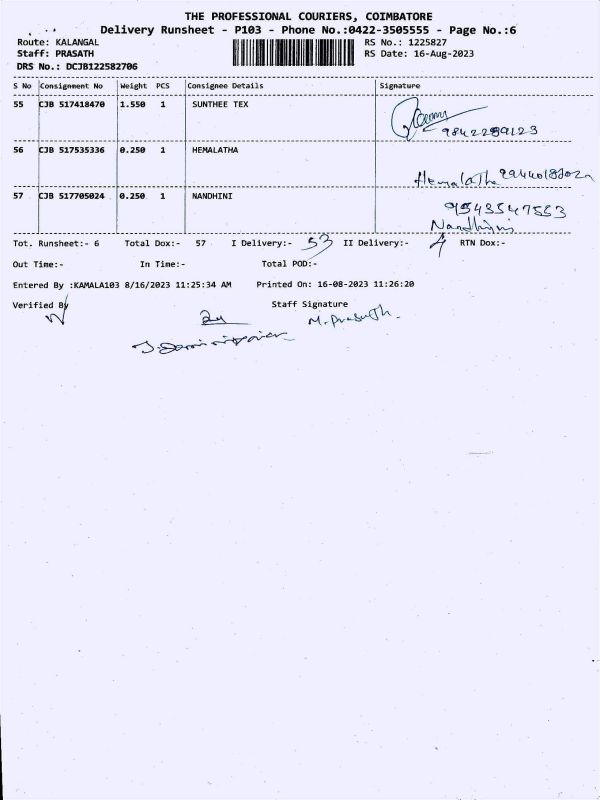 THE PROFESSIONAL COURIERS, COIMBATORE
Delivery Runsheet - P103 - Phone No.:0422-3505555 - Page No.:6
Route: KALANGAL RS No.: 1225827
Staff: PRASATH RS Date: 16-Aug-2023
DRS No.: DCJB122582706
S No Consignment No Weight PCS Consignee Details Signature
55 CJB 517418470 1.550 1 SUNTHEE TEX
9842289123
56 CJB 517535336 0.250 1 HEMALATHA
Hemalatha
57 CJB 517705024 0.250 1 NANDHINI 9543547553
Nandhini
Tot. Runsheet:- 6 Total Dox:- 57 I Delivery:- 53 II Delivery:- 4 RTN Dox:-
Out Time:- In Time:- Total POD:-
Entered By :KAMALA103 8/16/2023 11:25:34 AM Printed On: 16-08-2023 11:26:20
Verified By Staff Signature
M. Prasath.